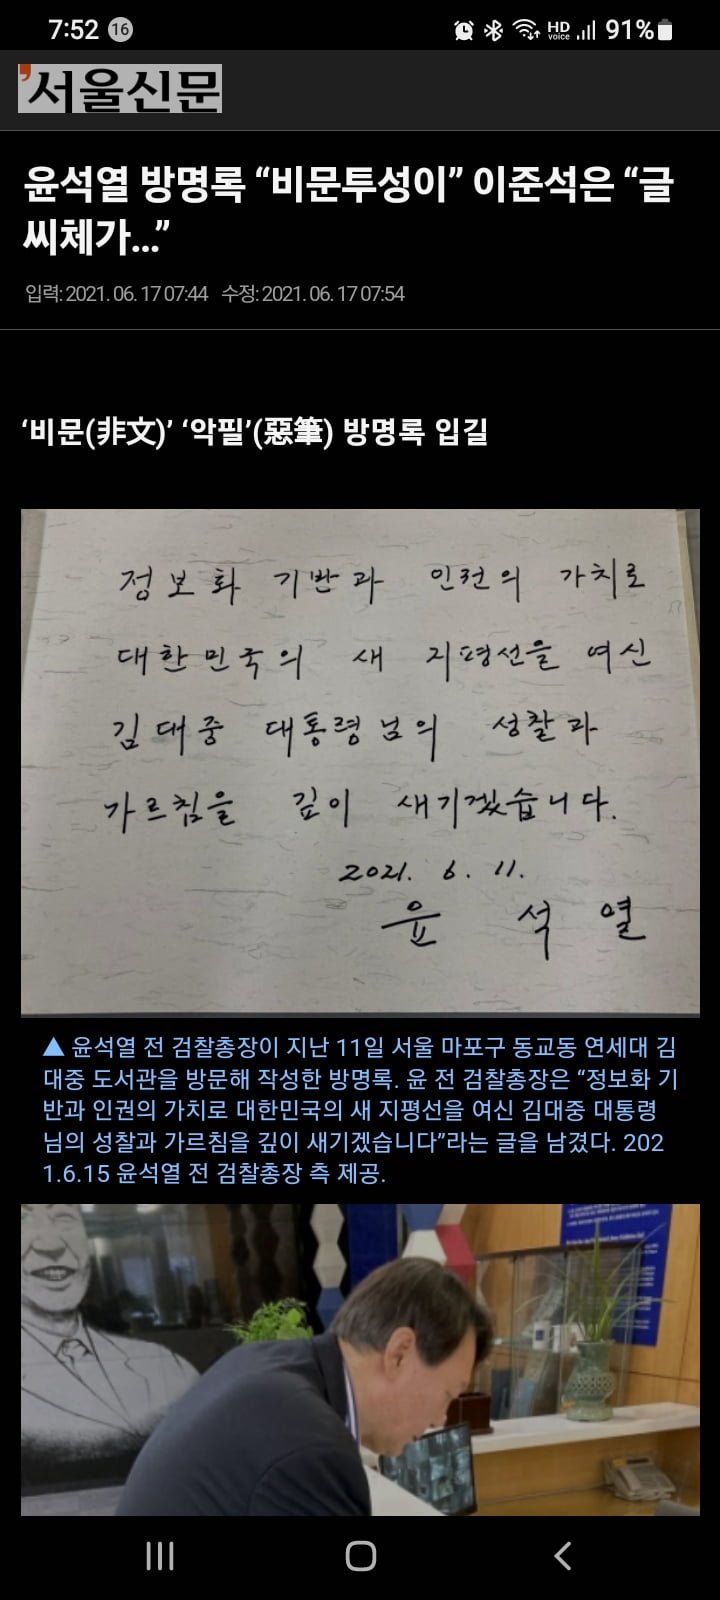 7:52 16 HD voice 91%
서울신문
윤석열 방명록 “비문투성이” 이준석은 “글
씨체가…”
입력: 2021. 06. 17 07:44 수정: 2021. 06. 17 07:54
‘비문(非文)’ ‘악필’(惡筆) 방명록 입길
정보화 기반과 인권의 가치로
대한민국의 새 지평선을 여신
김대중 대통령님의 성찰과
가르침을 깊이 새기겠습니다.
2021. 6. 11.
윤 석 열
▲ 윤석열 전 검찰총장이 지난 11일 서울 마포구 동교동 연세대 김
대중 도서관을 방문해 작성한 방명록. 윤 전 검찰총장은 “정보화 기
반과 인권의 가치로 대한민국의 새 지평선을 여신 김대중 대통령
님의 성찰과 가르침을 깊이 새기겠습니다”라는 글을 남겼다. 202
1.6.15 윤석열 전 검찰총장 측 제공.